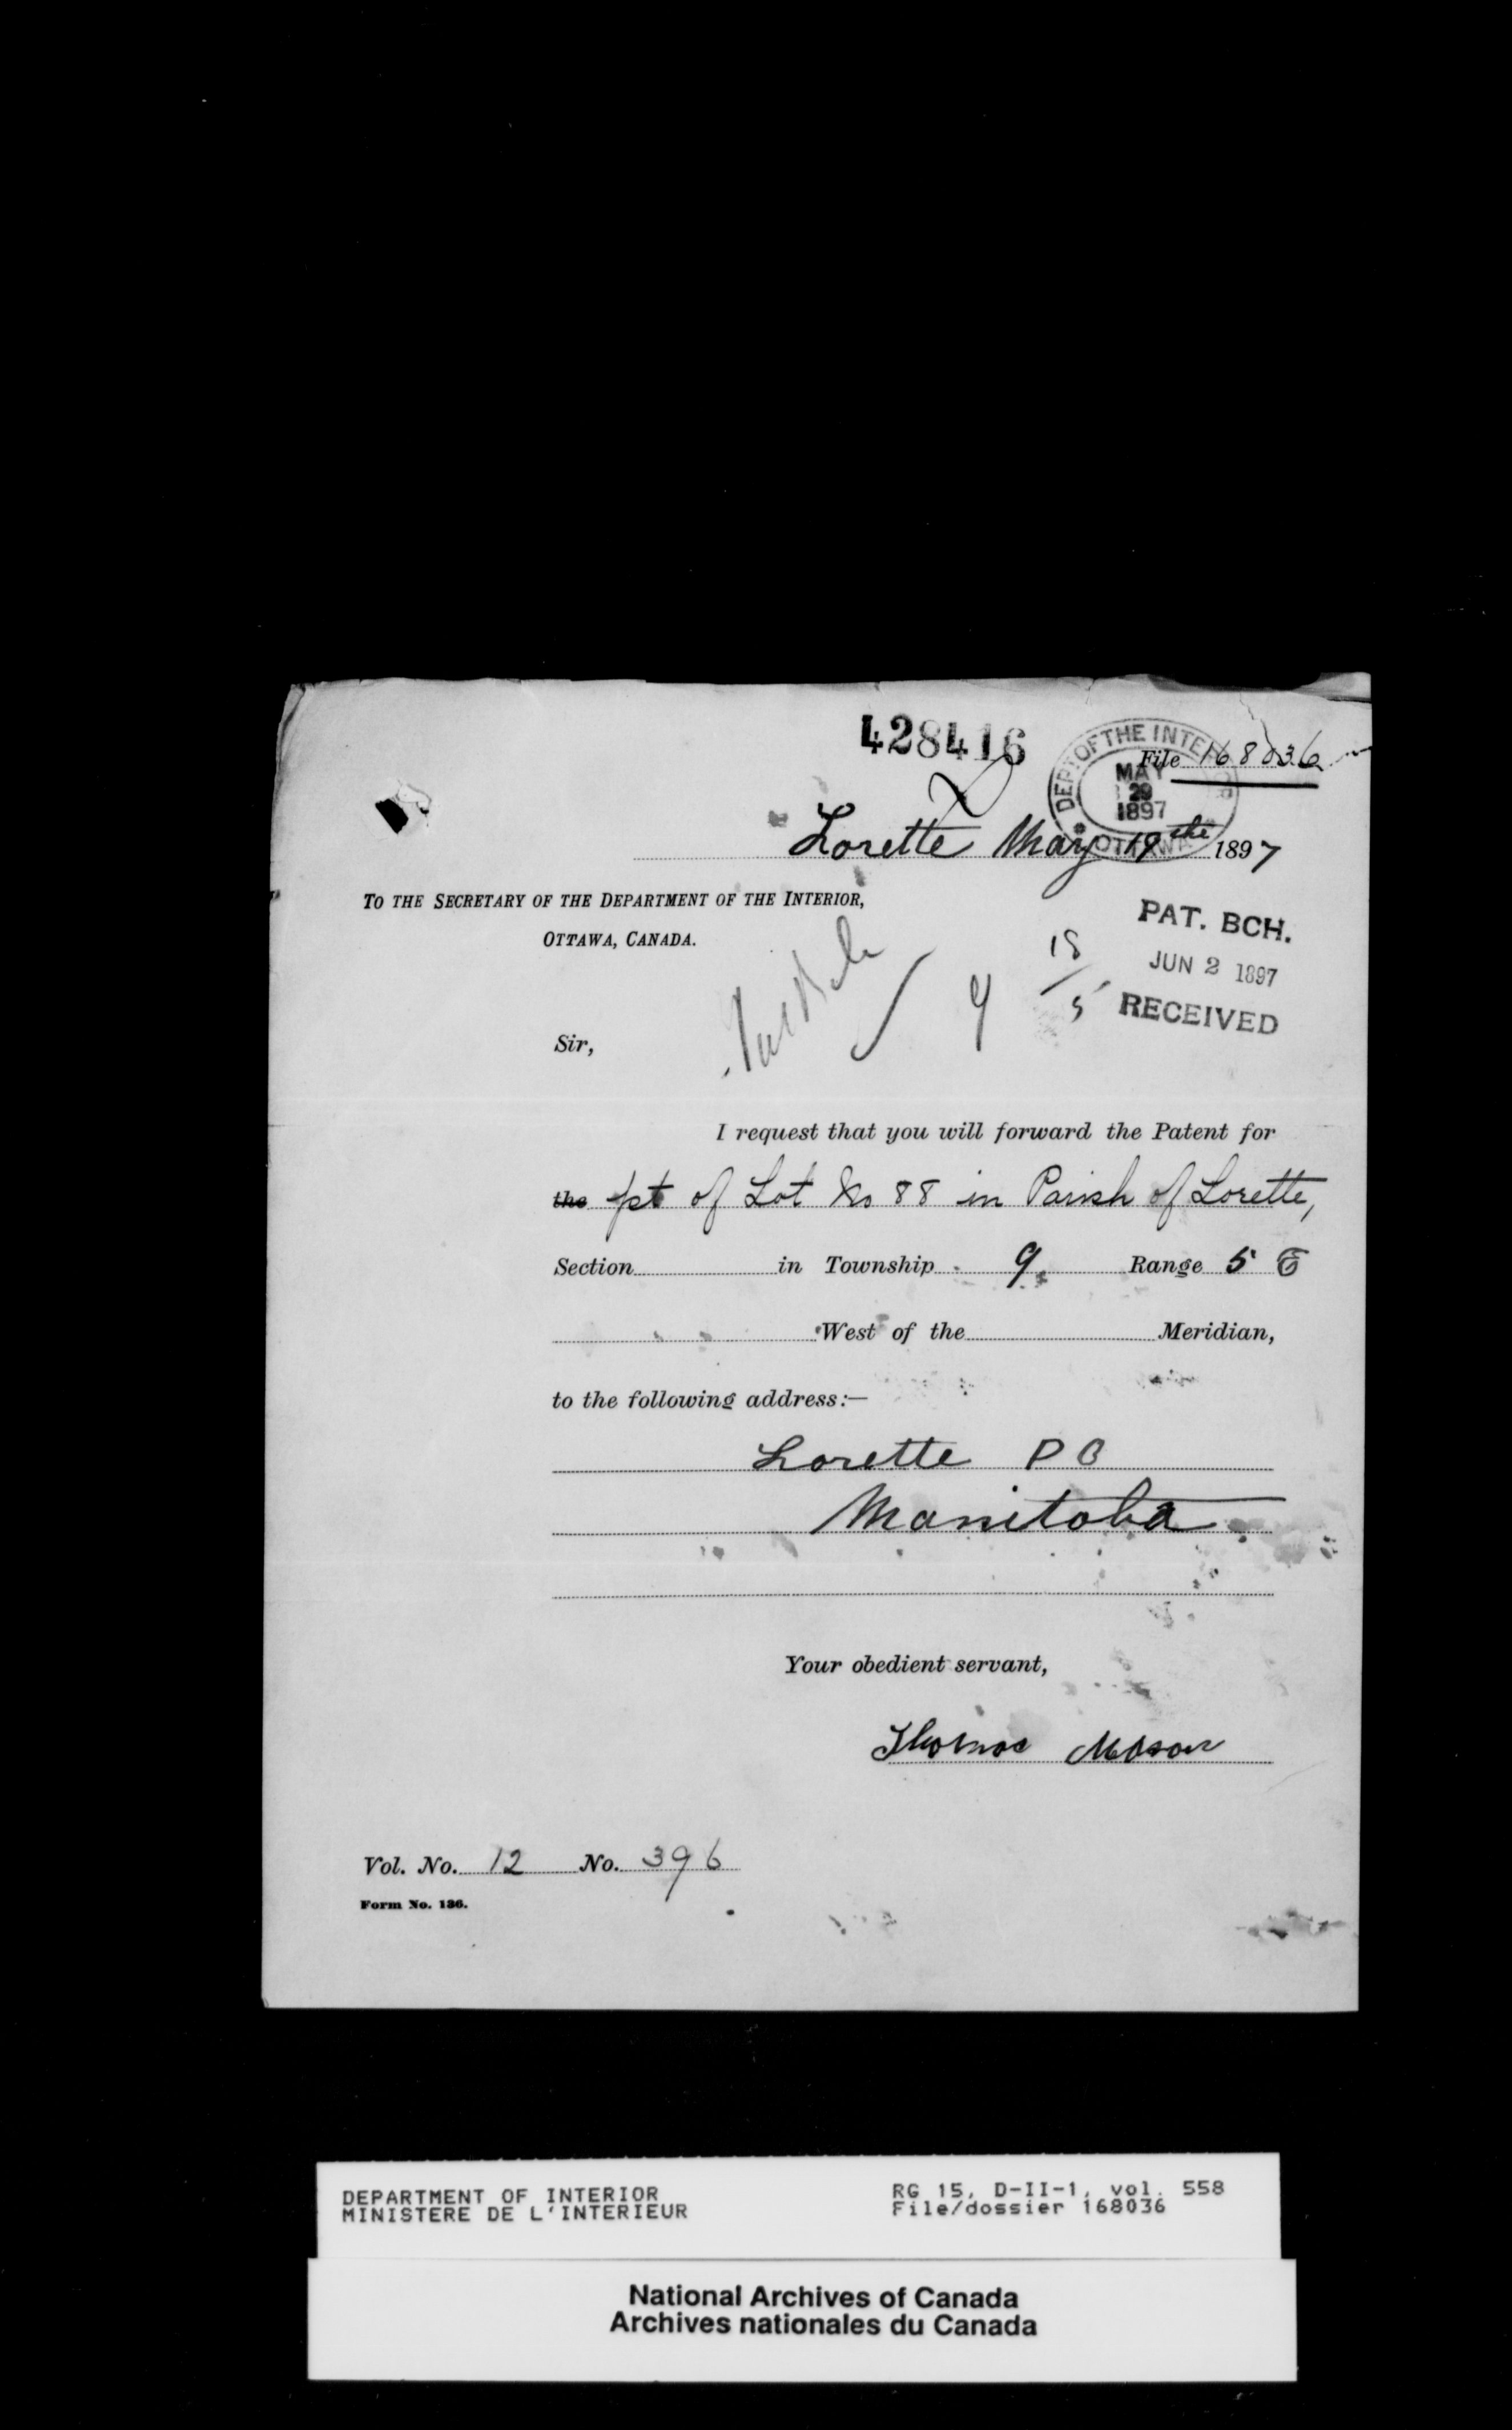 428416
DEPT OF THE INTERIOR
MAY
29
1897
OTTAWA
File 168036
Lorette May 19the 1897
TO THE SECRETARY OF THE DEPARTMENT OF THE INTERIOR,
OTTAWA, CANADA.
PAT. BCH.
JUN 2 1897
RECEIVED
9
18
5
Sir,
I request that you will forward the Patent for
the pt of Lot No 88 in Parish of Lorette,
Section in Township 9 Range 5 E
West of the Meridian,
to the following address:—
Lorette P O
Manitoba
Your obedient servant,
Thomas Mason
Vol. No. 12 No. 396
Form No. 136.
DEPARTMENT OF INTERIOR
MINISTERE DE L'INTERIEUR
RG 15, D-II-1, vol. 558
File/dossier 168036
National Archives of Canada
Archives nationales du Canada